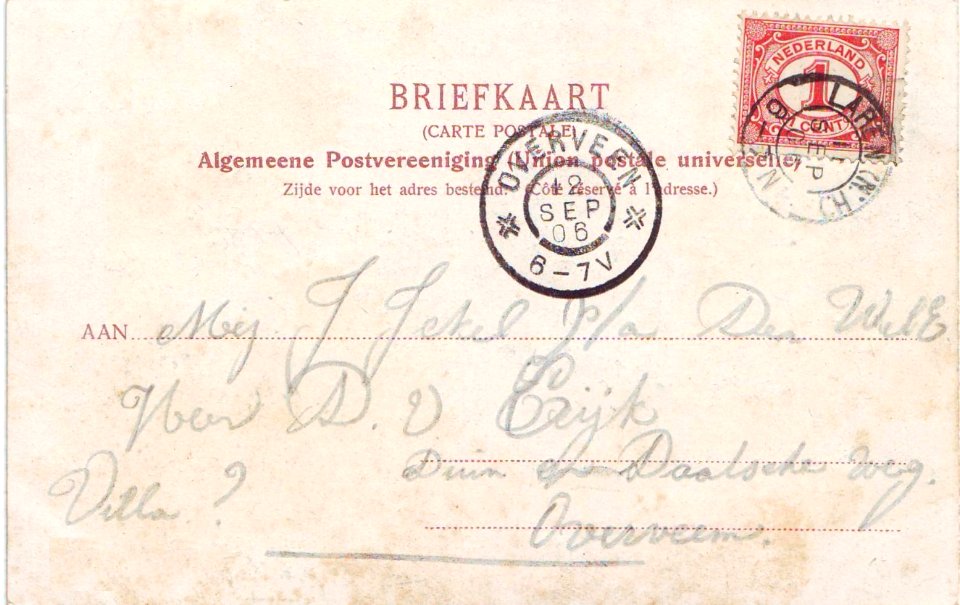 NEDERLAND
1
CENT
LAREN (N.H.)
SEP
BRIEFKAART
(CARTE POSTALE)
Algemeene Postvereeniging (Union postale universelle)
Zijde voor het adres bestemd. (Côté réservé à l'adresse.)
OVERVEEN
12
SEP
06
6-7V
AAN Mej J Jekel p/a Den WelE
Heer D. V Eeijk
Duin en Daalsche weg.
Villa ?
Overveen.